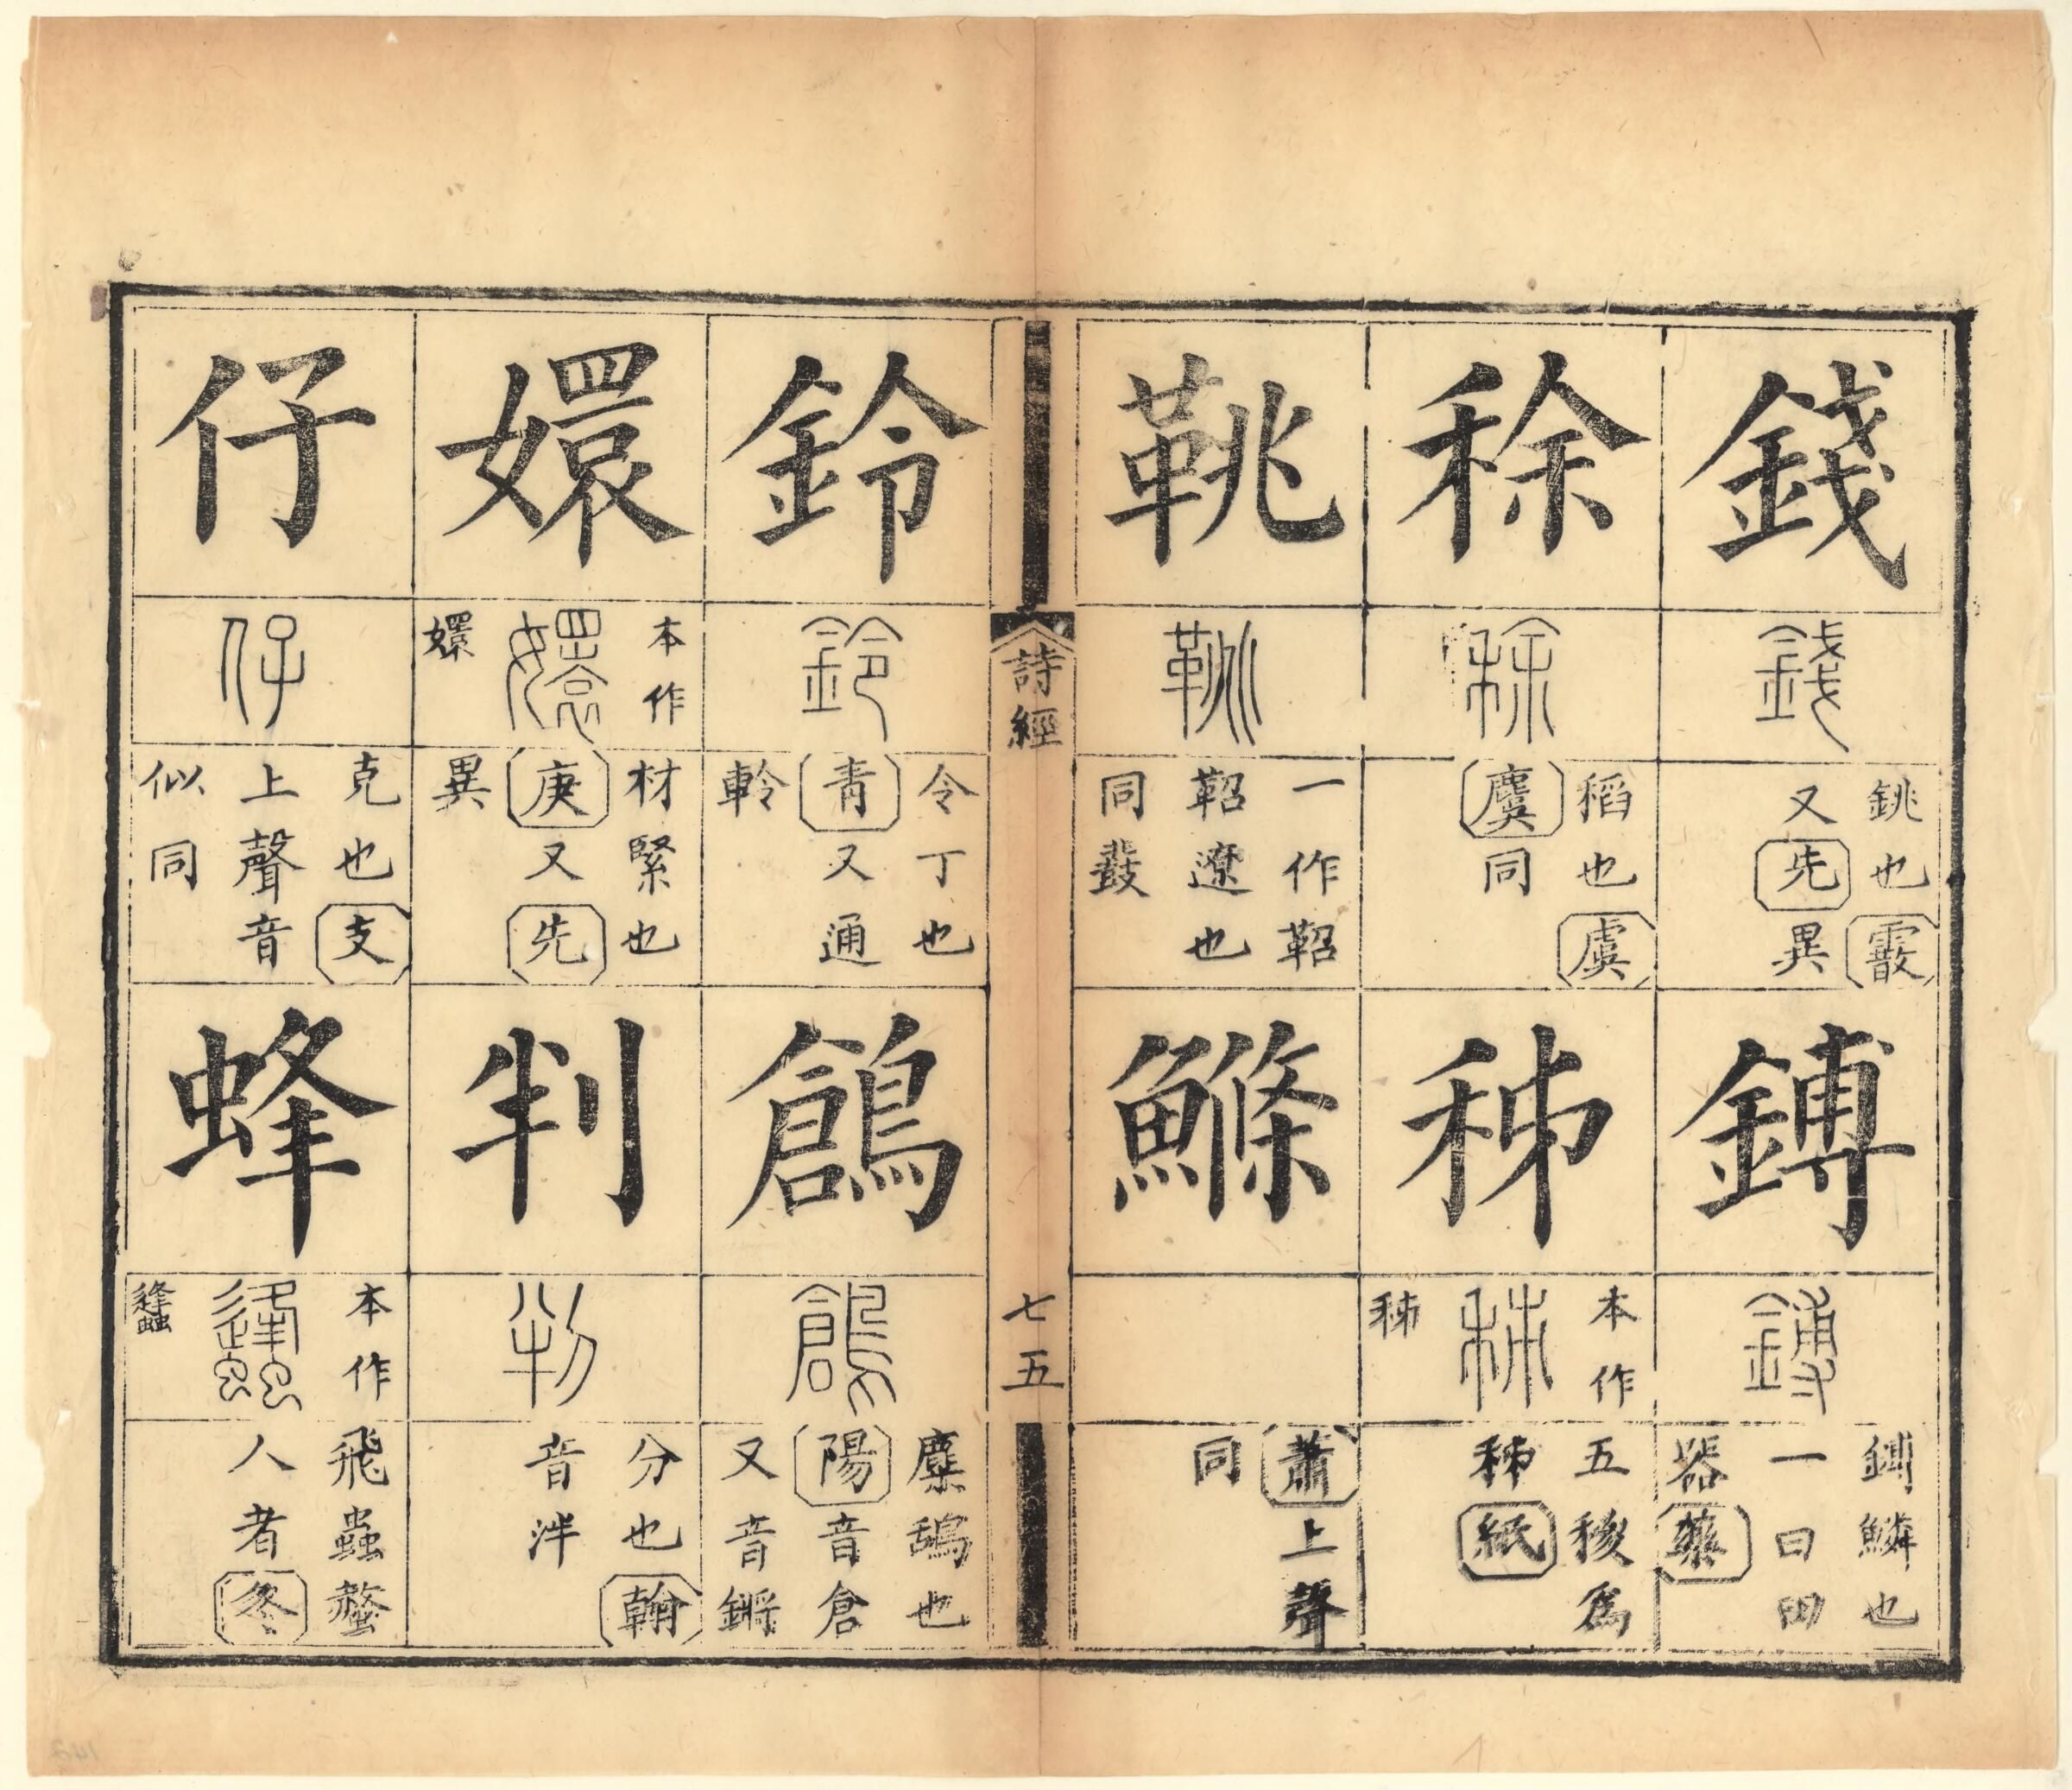 錢
錢
銚也霰
又先異
鎛
鎛
鎛鱗也
一曰田
器藥
稌
稌
稻也虞
麌同
秭
本作
秭
秭
五稯爲
秭紙
鞉
鞉
一作鞀
鞀遼也
同鼗
鰷
蕭上聲
同
詩經
七五
鈴
鈴
令丁也
青又通
軨
鶬
鶬
麋鴰也
陽音倉
又音鏘
嬛
本作
嬛
嬛
材緊也
庚又先
異
判
判
分也翰
音泮
仔
仔
克也支
上聲音
似同
蜂
本作
蠭
蠭
飛蟲螫
人者冬